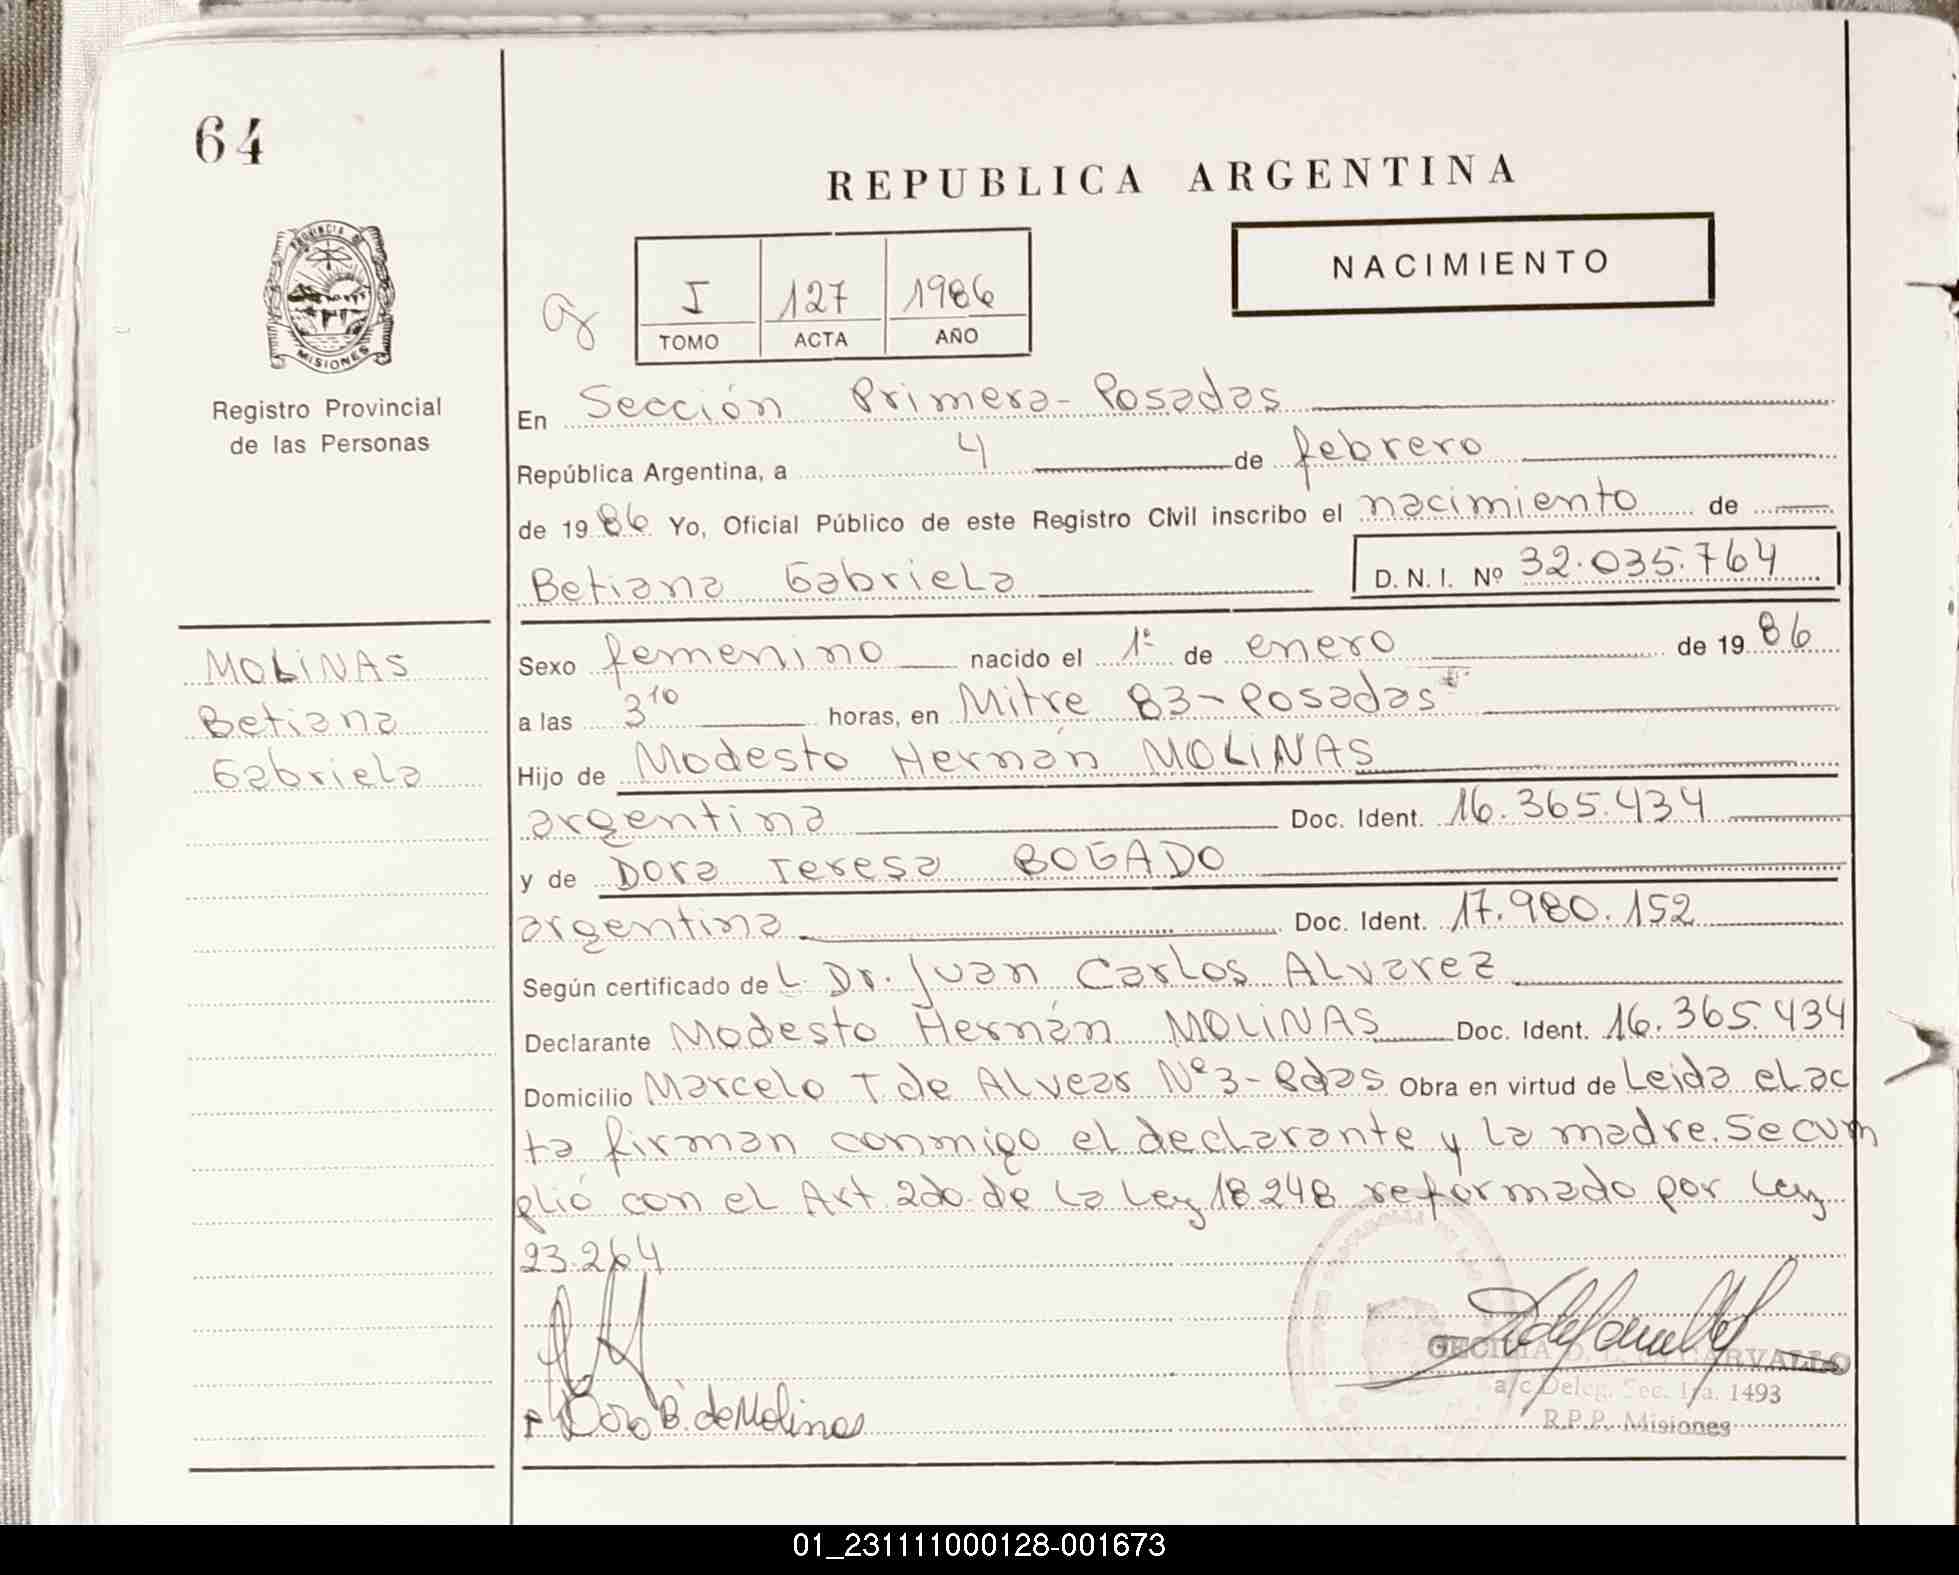 64
REPUBLICA ARGENTINA
NACIMIENTO
I 127 1986
TOMO ACTA AÑO
PROVINCIA DE
MISIONES
Registro Provincial
de las Personas
En Sección Primera - Posadas
República Argentina, a 4 de febrero
de 1986 Yo, Oficial Público de este Registro Civil inscribo el nacimiento de
Betiana Gabriela D.N.I. Nº 32.035.764
MOLINAS
Betiana
Gabriela
Sexo femenino nacido el 1º de enero de 1986
a las 3 10 horas, en Mitre 83 - Posadas
Hijo de Modesto Hernán MOLINAS
argentina Doc. Ident. 16.365.434
y de Dora Teresa BOGADO
argentina Doc. Ident. 17.980.152
Según certificado de L. Dr. Juan Carlos Alvarez
Declarante Modesto Hernán MOLINAS Doc. Ident. 16.365.434
Domicilio Marcelo T. de Alvear Nº 3 - Pdas Obra en virtud de Leida el ac
ta firman conmigo el declarante y la madre. Se cum
plió con el Art. 2do. de la Ley 18248 reformado por Ley
23.264
Dora B. de Molinas
CARVALLO
a/c Deleg. Sec. 1ra. 1493
R.P.P. Misiones
01_231111000128-001673